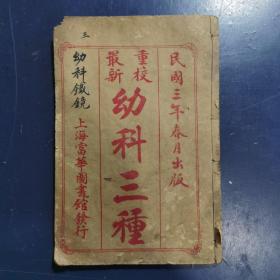 民國三年春月出版
重校
最新
幼科三種
上海富華圖書館發行
幼科鐵鏡
三